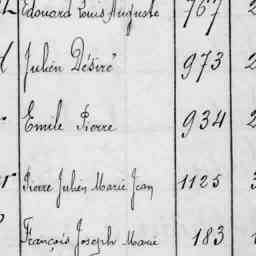 Edouard Louis Auguste 767 2
Julien Désiré 973 2
Emile Pierre 934 2
Pierre Julien Marie Jean 1125 3
François Joseph Marie 183